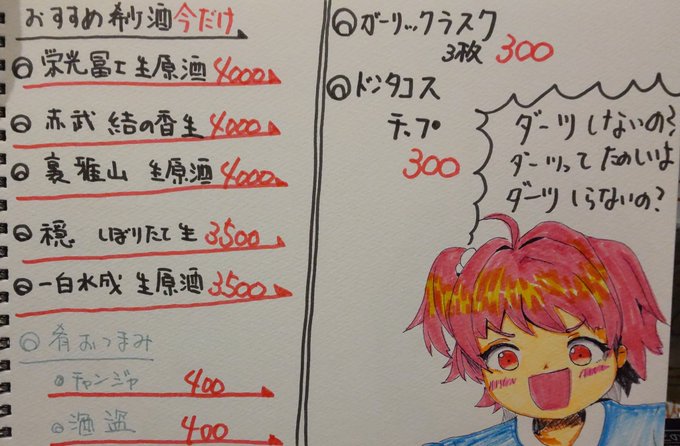 おすすめ希少酒今だけ
栄光冨士生原酒4000
赤武 結の香生4000
裏雅山 生原酒4000
穏 しぼりたて生3500
一白水成 生原酒3500
肴おつまみ
チャンジャ 400
酒盗 400
ガーリックラスク
3枚 300
ドンタコス
チップ
300
ダーツしないの?
ダーツってたのしいよ
ダーツしらないの?